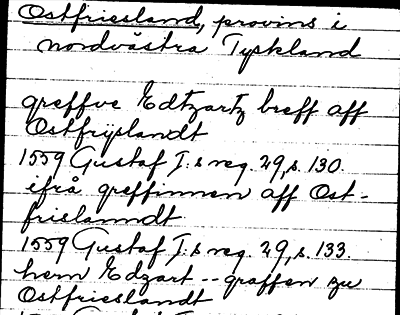 Ostfriesland, provins i
nordvästra Tyskland
greffve Edtzartz breff aff
Ostfrijslandt
1559 Gustaf I:s reg. 29, s. 130.
ifrå greffinnen aff Ost-
frislanndt
1559 Gustaf I:s reg. 29, s. 133.
hern Edzart -- graffen zu
Ostfrieslandt